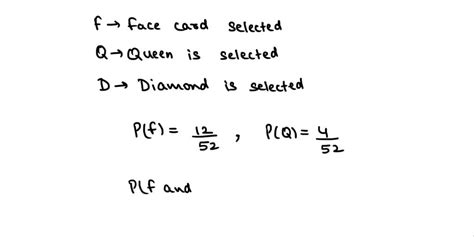 f → face card selected
Q → Queen is selected
D → Diamond is selected
P(f) = 12/52 , P(Q) = 4/52
P(f and